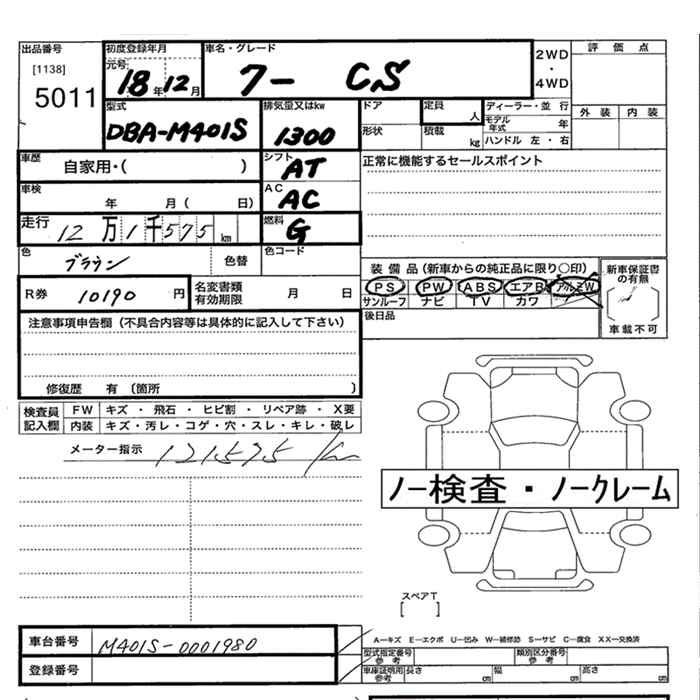 出品番号
[1138]
5011
初度登録年月
元号
18年12月
車名・グレード
クー CS
2WD
・
4WD
評価点
外装 内装
型式
DBA-M401S
排気量又はkw
1300
ドア
定員
人
形状
積載
kg
ディーラー・並行
モデル年式 年
ハンドル 左・右
車歴
自家用・( )
シフト
AT
正常に機能するセールスポイント
車検
年 月( 日)
AC
AC
走行
12万1千575km
燃料
G
色
ブラウン
色替
色コード
装備品(新車からの純正品に限り○印)
PS PW ABS エアB アルミW
サンルーフ ナビ TV カワ
新車保証書の有無
車載不可
R券 10190円
名変書類有効期限 月 日
後日品
注意事項申告欄(不具合内容等は具体的に記入して下さい)
修復歴 有(箇所 )
検査員記入欄
FW キズ・飛石・ヒビ割・リペア跡・X要
内装 キズ・汚レ・コゲ・穴・スレ・キレ・破レ
メーター指示 121575 km
ノー検査・ノークレーム
スペアT
[ ]
車台番号 M401S-0001980
登録番号
A―キズ E―エクボ U―凹み W―補修跡 S―サビ C―腐食 XX―交換済
型式指定番号参考
類別区分番号参考
車庫証明用参考 長さ cm 幅 cm 高さ cm